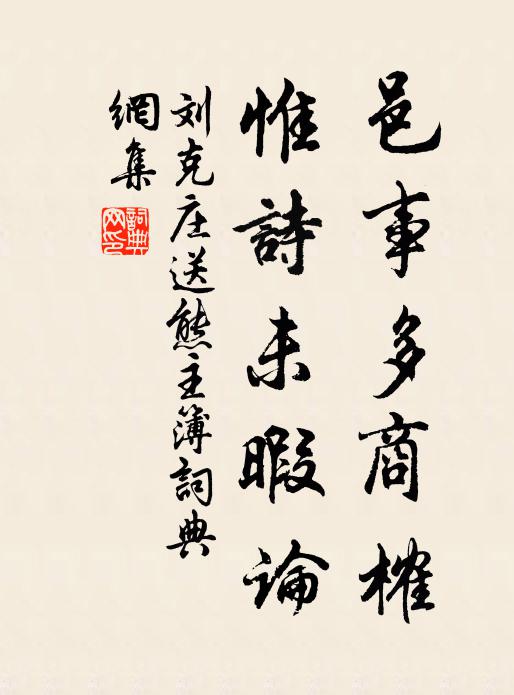 邑事多商榷
惟詩未暇論
刘克庄送熊主簿詞典
網集
詞典
网印